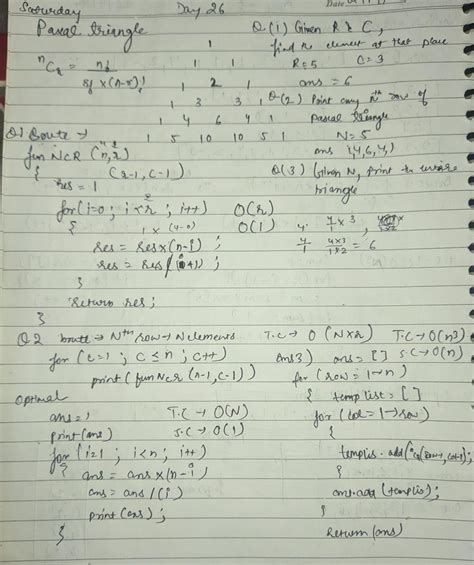 Saturday Day 26 Date
Pascal triangle
ⁿCᵣ = n!
r! × (n-r)!
1
1 1
1 2 1
1 3 3 1
1 4 6 4 1
1 5 10 10 5 1
Q(1) Given R & C,
find the element at that place
R=5 C=3
ans = 6
Q(2) Print any Nth row of
Pascal triangle
N=5
ans 1,4,6,4,1
Q(3) Given N, print the entire
triangle
Q1 Brute →
fun NcR (n, r)
(r-1, c-1)
{
res = 1
for(i=0; i<r; i++) O(r)
{ 1 × (4-0) O(1) 4. 4/1 × 3
res = res×(n-i); 4/1 4×3/1×2 = 6
res = res/(i+1);
}
return res;
}
Q2 brute → Nth row → N elements T.C → O(N×r)
for (c=1; c≤n; c++)
print (fun NcR (n-1, c-1))
Optimal
ans=1 T.C → O(N)
print(ans) S.C → O(1)
for (i=1; i<n; i++)
{ ans = ans×(n-i)
ans = ans/(i)
print(ans);
}
T.C → O(n3)
Ans3) ans = [] S.C → O(n)
for (row = 1→n)
{ templist = []
for (col = 1→row)
{
templis.add(ncr(row-1, col-1);
}
ans.add(templis);
}
Return(ans)